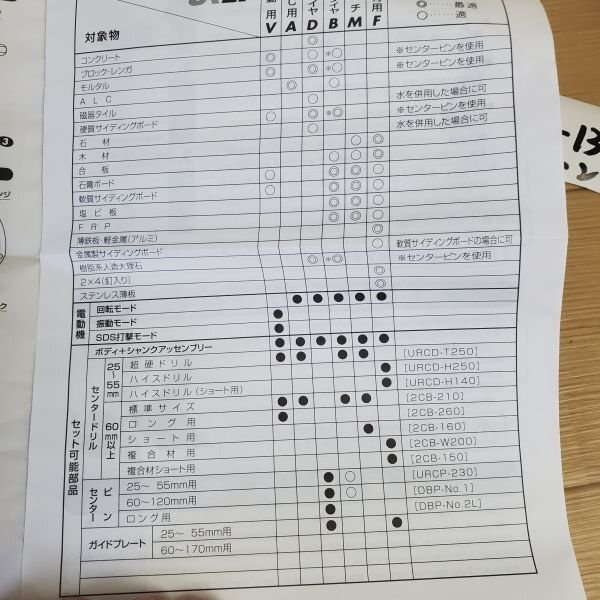 ◎……最適
○……適
対象物
V A D B M F
コンクリート
ブロック・レンガ ※センターピンを使用
モルタル ※センターピンを使用
ＡＬＣ
磁器タイル 水を併用した場合に可
硬質サイディングボード ※センターピンを使用
石材 水を併用した場合に可
木材
合板
石膏ボード
軟質サイディングボード
塩ビ板
ＦＲＰ
薄鉄板・軽金属(アルミ)
金属製サイディングボード 軟質サイディングボードの場合に可
樹脂系人造大理石 ※センターピンを使用
2×4(釘入り)
ステンレス薄板
電動機
回転モード
振動モード
SDS打撃モード
セット可能部品
ボディ+シャンクアッセンブリー
センタードリル
25～55mm
超硬ドリル [URCD-T250]
ハイスドリル [URCD-H250]
ハイスドリル(ショート用) [URCD-H140]
60mm以上
標準サイズ [2CB-210]
ロング用 [2CB-260]
ショート用 [2CB-160]
複合材用 [2CB-W200]
複合材ショート用 [2CB-150]
センターピン
25～ 55mm用 [URCP-230]
60～120mm用 [DBP-No.1]
ロング用 [DBP-No.2L]
ガイドプレート
25～ 55mm用
60～170mm用